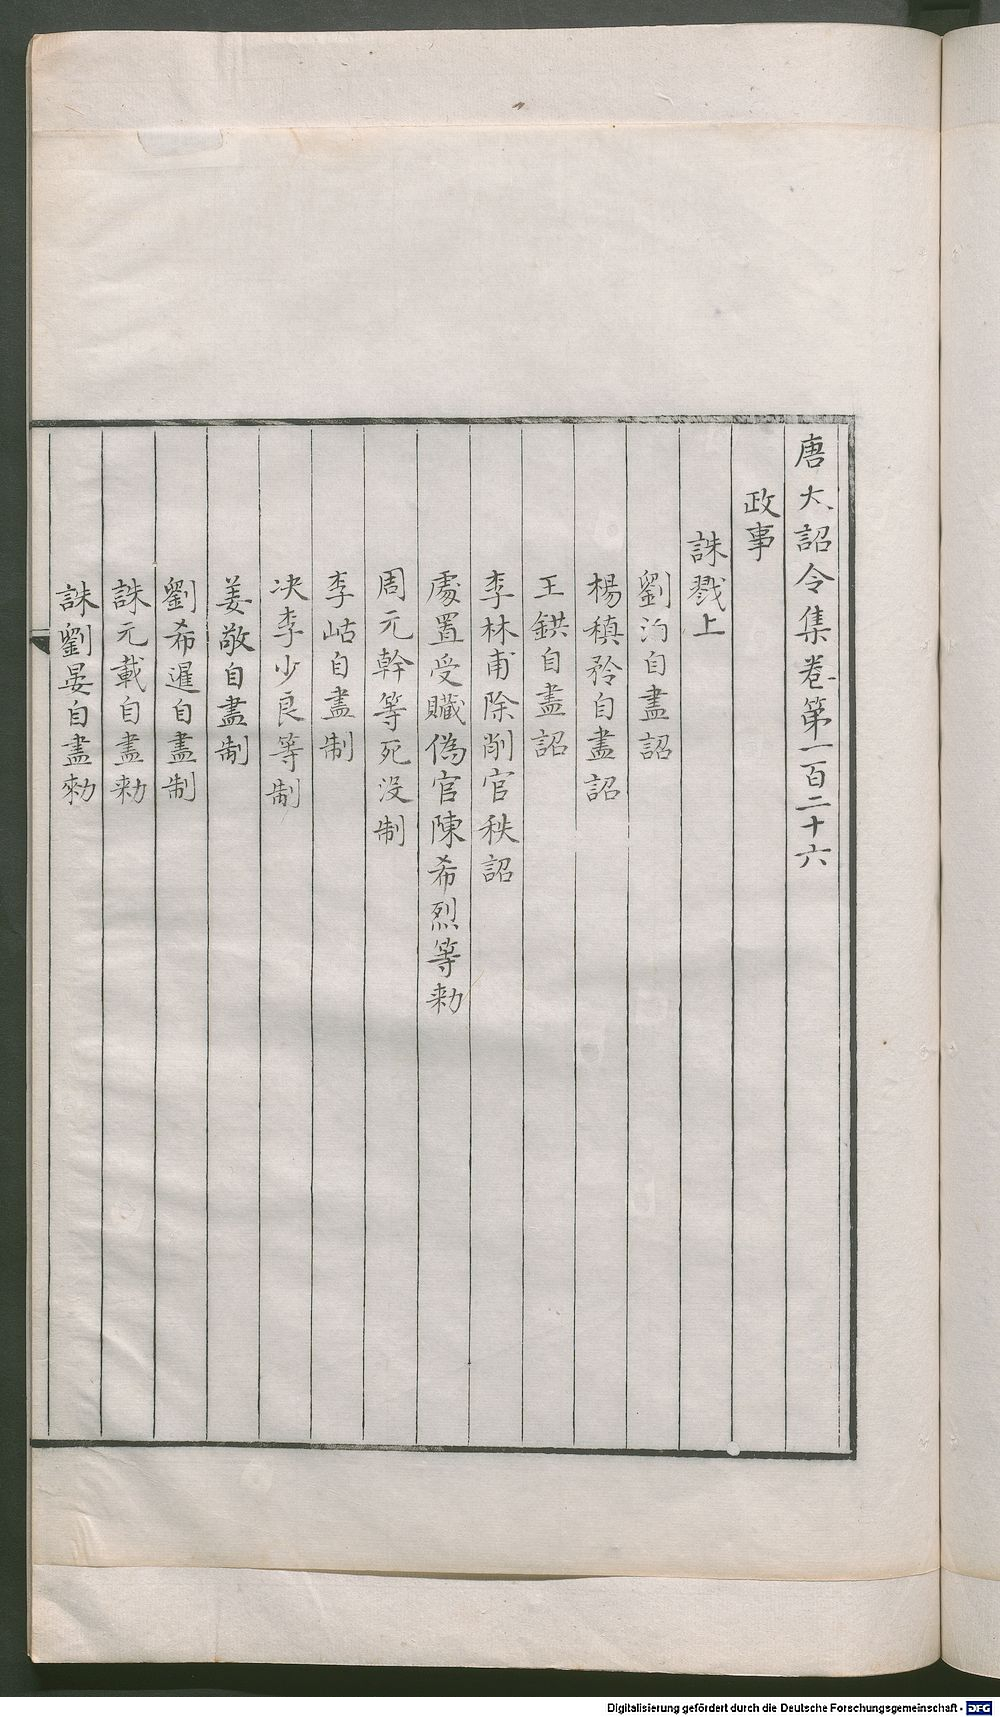 唐大詔令集卷第一百二十六
政事
誅戮上
劉洎自盡詔
楊稹矜自盡詔
王鉷自盡詔
李林甫除削官秩詔
處置受贓偽官陳希烈等勑
周元幹等死没制
李岵自盡制
决李少良等制
姜敬自盡制
劉希暹自盡制
誅元載自盡勑
誅劉晏自盡勑
Digitalisierung gefördert durch die Deutsche Forschungsgemeinschaft - DFG